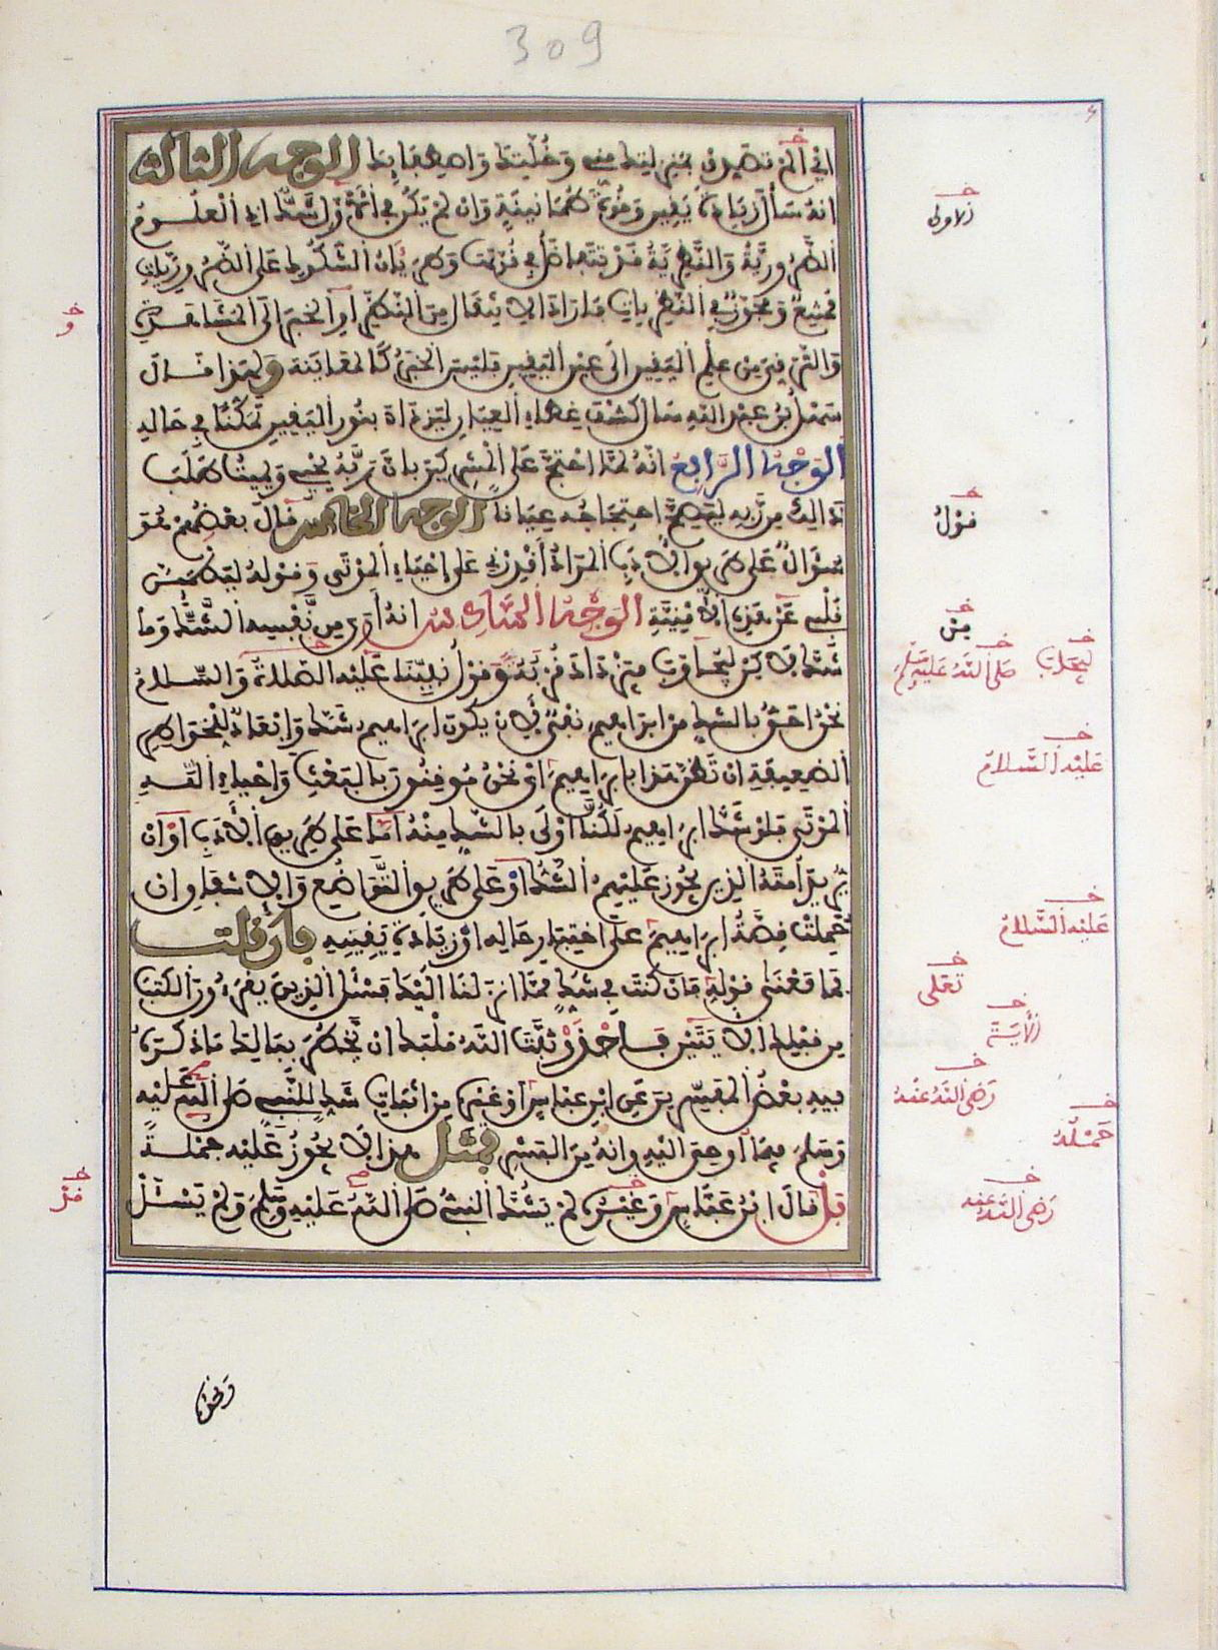 309
اي ألم تصدق بمنزلتك مني وخلتك واصطفائك الوجه الثالث
انه سأل زيادة يقين وقوة طمانينة وان لم يكن في الاول شك اذ العلوم
الضرورية والنظرية قد تتفاضل في قوتها وطريان الشكوك على الضروريات
ممتنع ومجوز في النظريات فاراد الانتقال من النظر او الخبر الى المشاهدة
والترقي من علم اليقين الى عين اليقين فليس الخبر كالمعاينة ولهذا قال
سهل بن عبد الله سال كشف غطاء العيان ليزداد بنور اليقين تمكنا في حاله
الوجه الرابع انه لما احتج على المشركين بان ربه يحيي ويميت طلب
ذالك من ربه ليصح احتجاجه عيانا الوجه الخامس قال بعضهم هو
سؤال على طريق الادب المراد أقدرني على إحياء الموتى وقوله ليطمئن
قلبي عن هذه الامنية الوجه السادس انه أرى من نفسه الشك وما
شك لاكن ليجاوب فيزداد قربه وقول نبينا عليه الصلاة والسلام
نحن احق بالشك من ابراهيم نفي لان يكون ابراهيم شك وابعاد للخواطر
الضعيفة ان تظن هذا بابراهيم اي نحن موقنون بالبعث واحياء الله
الموتى فلو شك ابراهيم لكنا اولى بالشك منه اما على طريق الادب او ان
يريد امته الذين يجوز عليهم الشك او على طريق التواضع والاشفاق ان
حملت قصة ابراهيم على اختبار حاله او زيادة يقينه فان قلت
فما معنى قوله فان كنت في شك مما انزلنا اليك فسئل الذين يقرءون الكتب
من قبلك الايتين فاحذر ثبت الله قلبك ان يخطر ببالك ما ذكره
فيه بعض المفسرين عن ابن عباس او غيره من اثبات شك للنبي صلى الله عليه
وسلم فيما أوحي اليه وانه من البشر فمثل هذا لا يجوز عليه جملة
بل قال ابن عباس وغيره لم يشك النبي صلى الله عليه وسلم ولم يسئل
ونحو
الاولى
و
قول
من
ليجاب
صلى الله عليه وسلم
عليه السلام
عليه السلام
تعلى
الأية
رضي الله عنه
جملة
رضي الله عنه